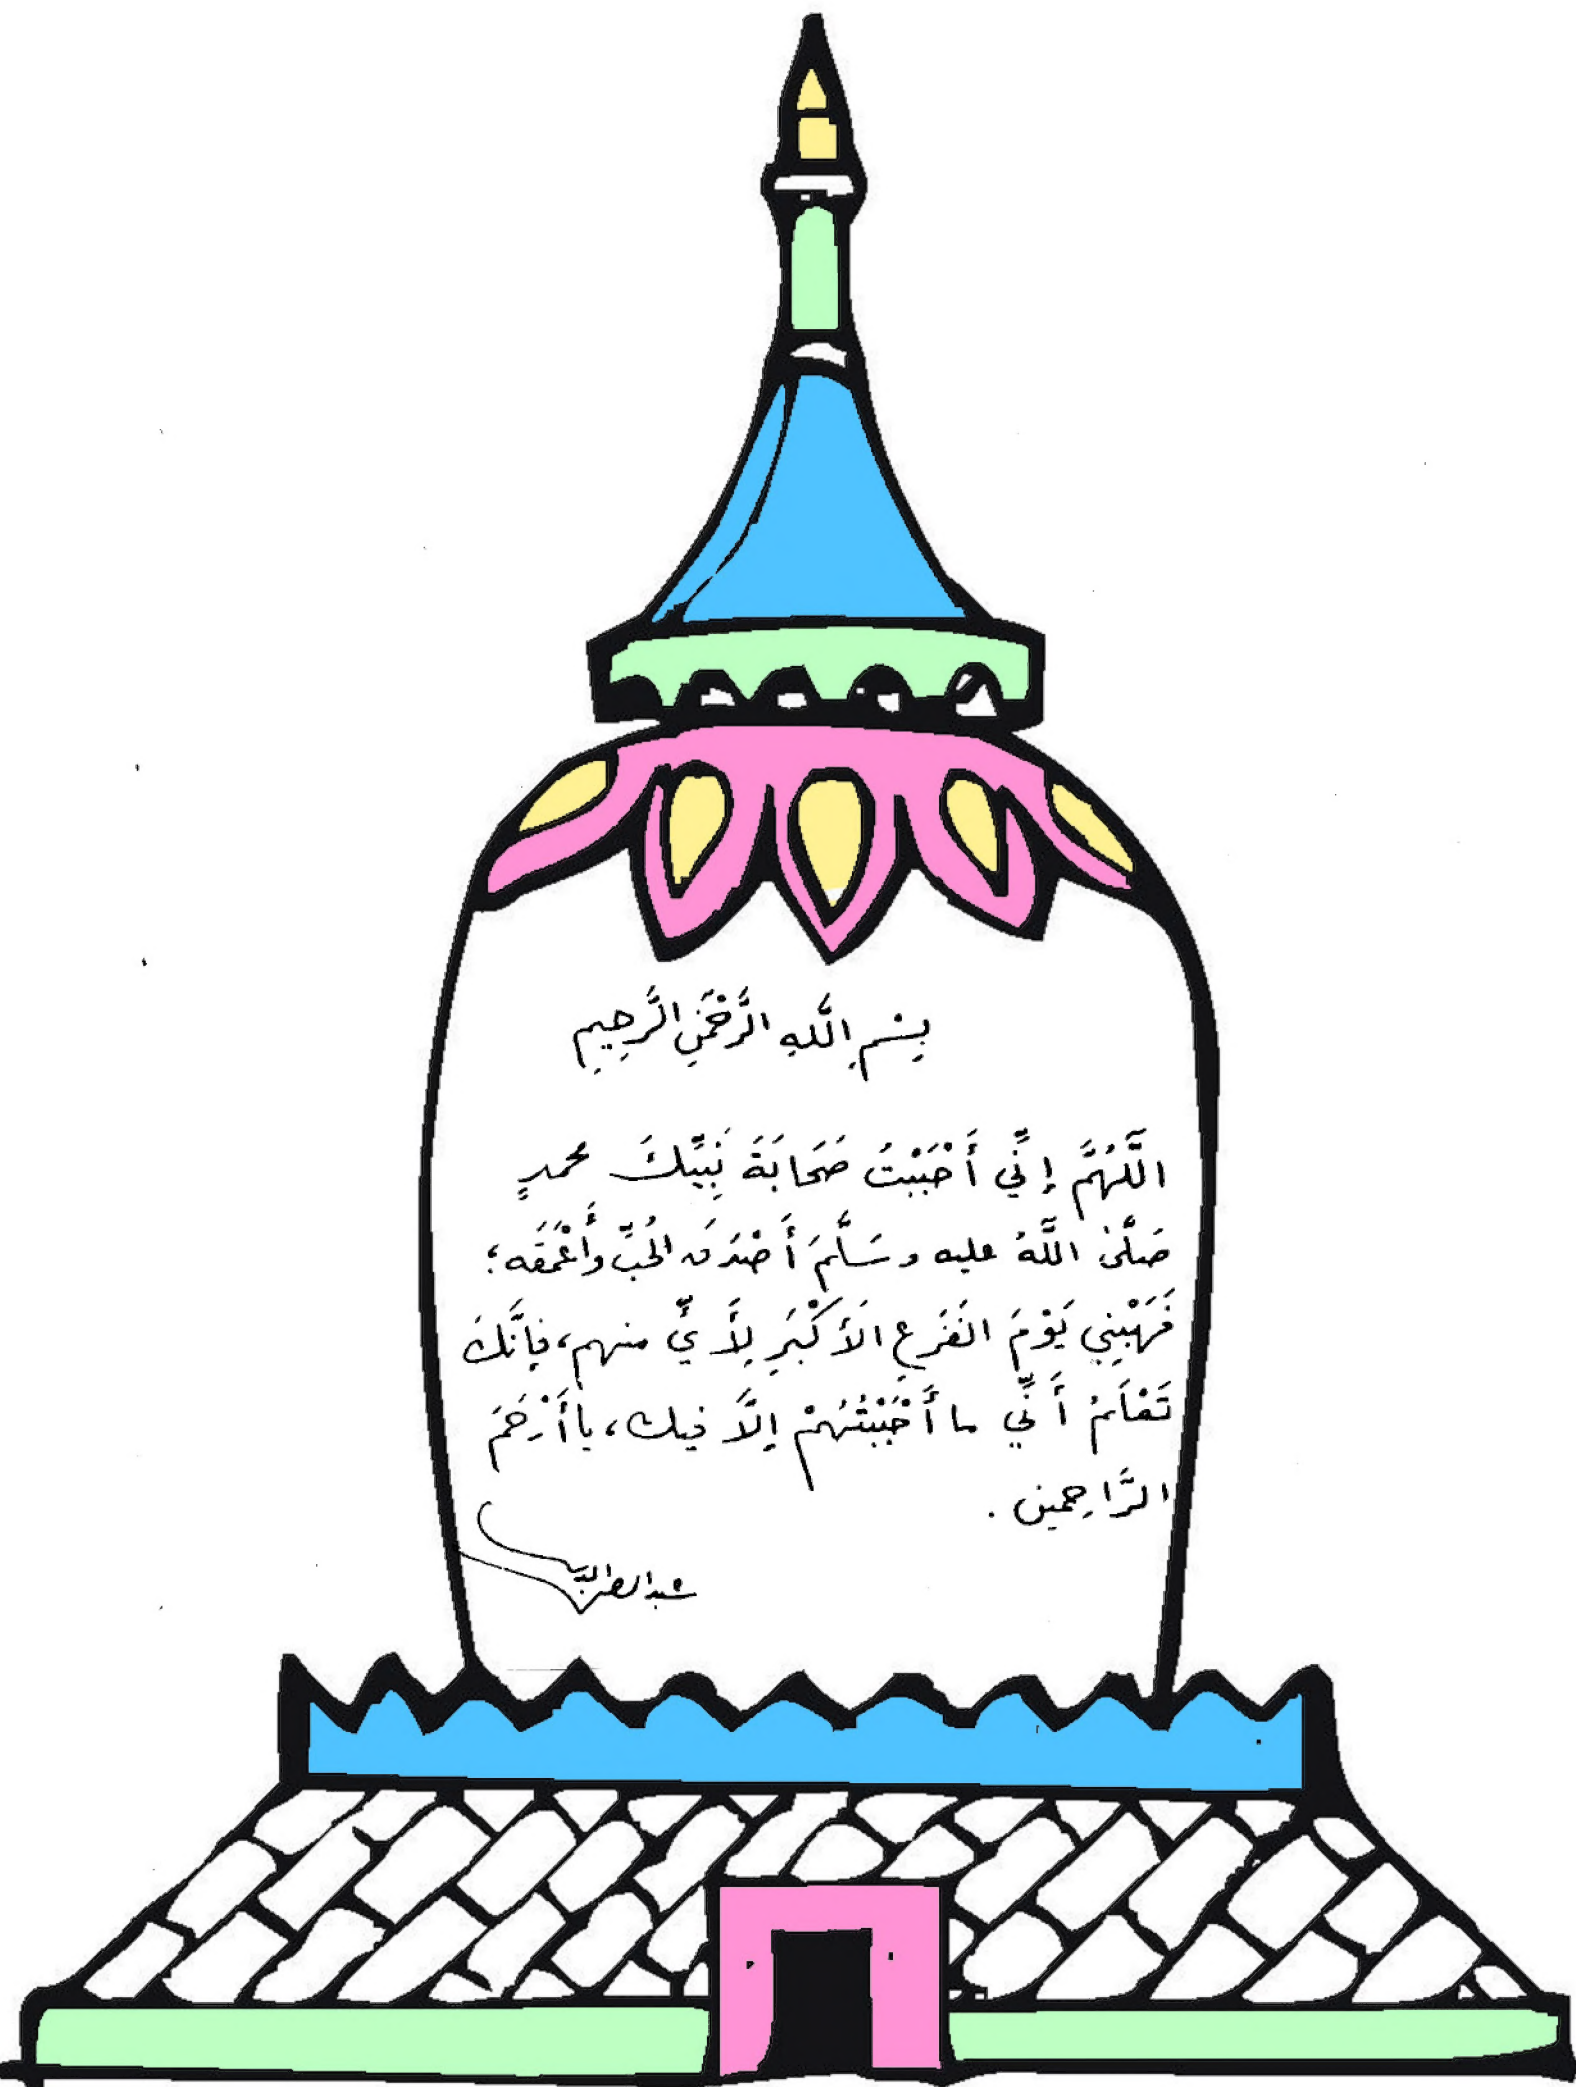 بِسْمِ اللَّهِ الرَّحْمَنِ الرَّحِيمِ
اللَّهُمَّ إِنِّي أَحْبَبْتُ صَحَابَةَ نَبِيِّكَ محمدٍ
صَلَّىٰ اللَّهُ عليه وسَلَّمَ أَصْدَقَ الحُبِّ وأَعْمَقَه؛
فَهَبْنِي يَوْمَ الفَزَعِ الأَكْبَرِ لِأَيٍّ منهم، فإنَّكَ
تَعْلَمُ أَنِّي ما أَحْبَبْتُهُمْ إِلَّا فيك، يا أَرْحَمَ
الرَّاحِمين.